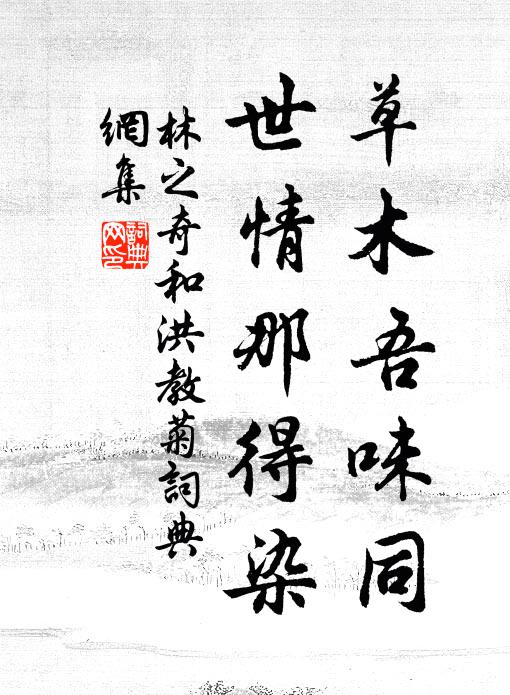 草木吾味同
世情那得染
林之奇和洪教菊詞典
網集
詞典
网印